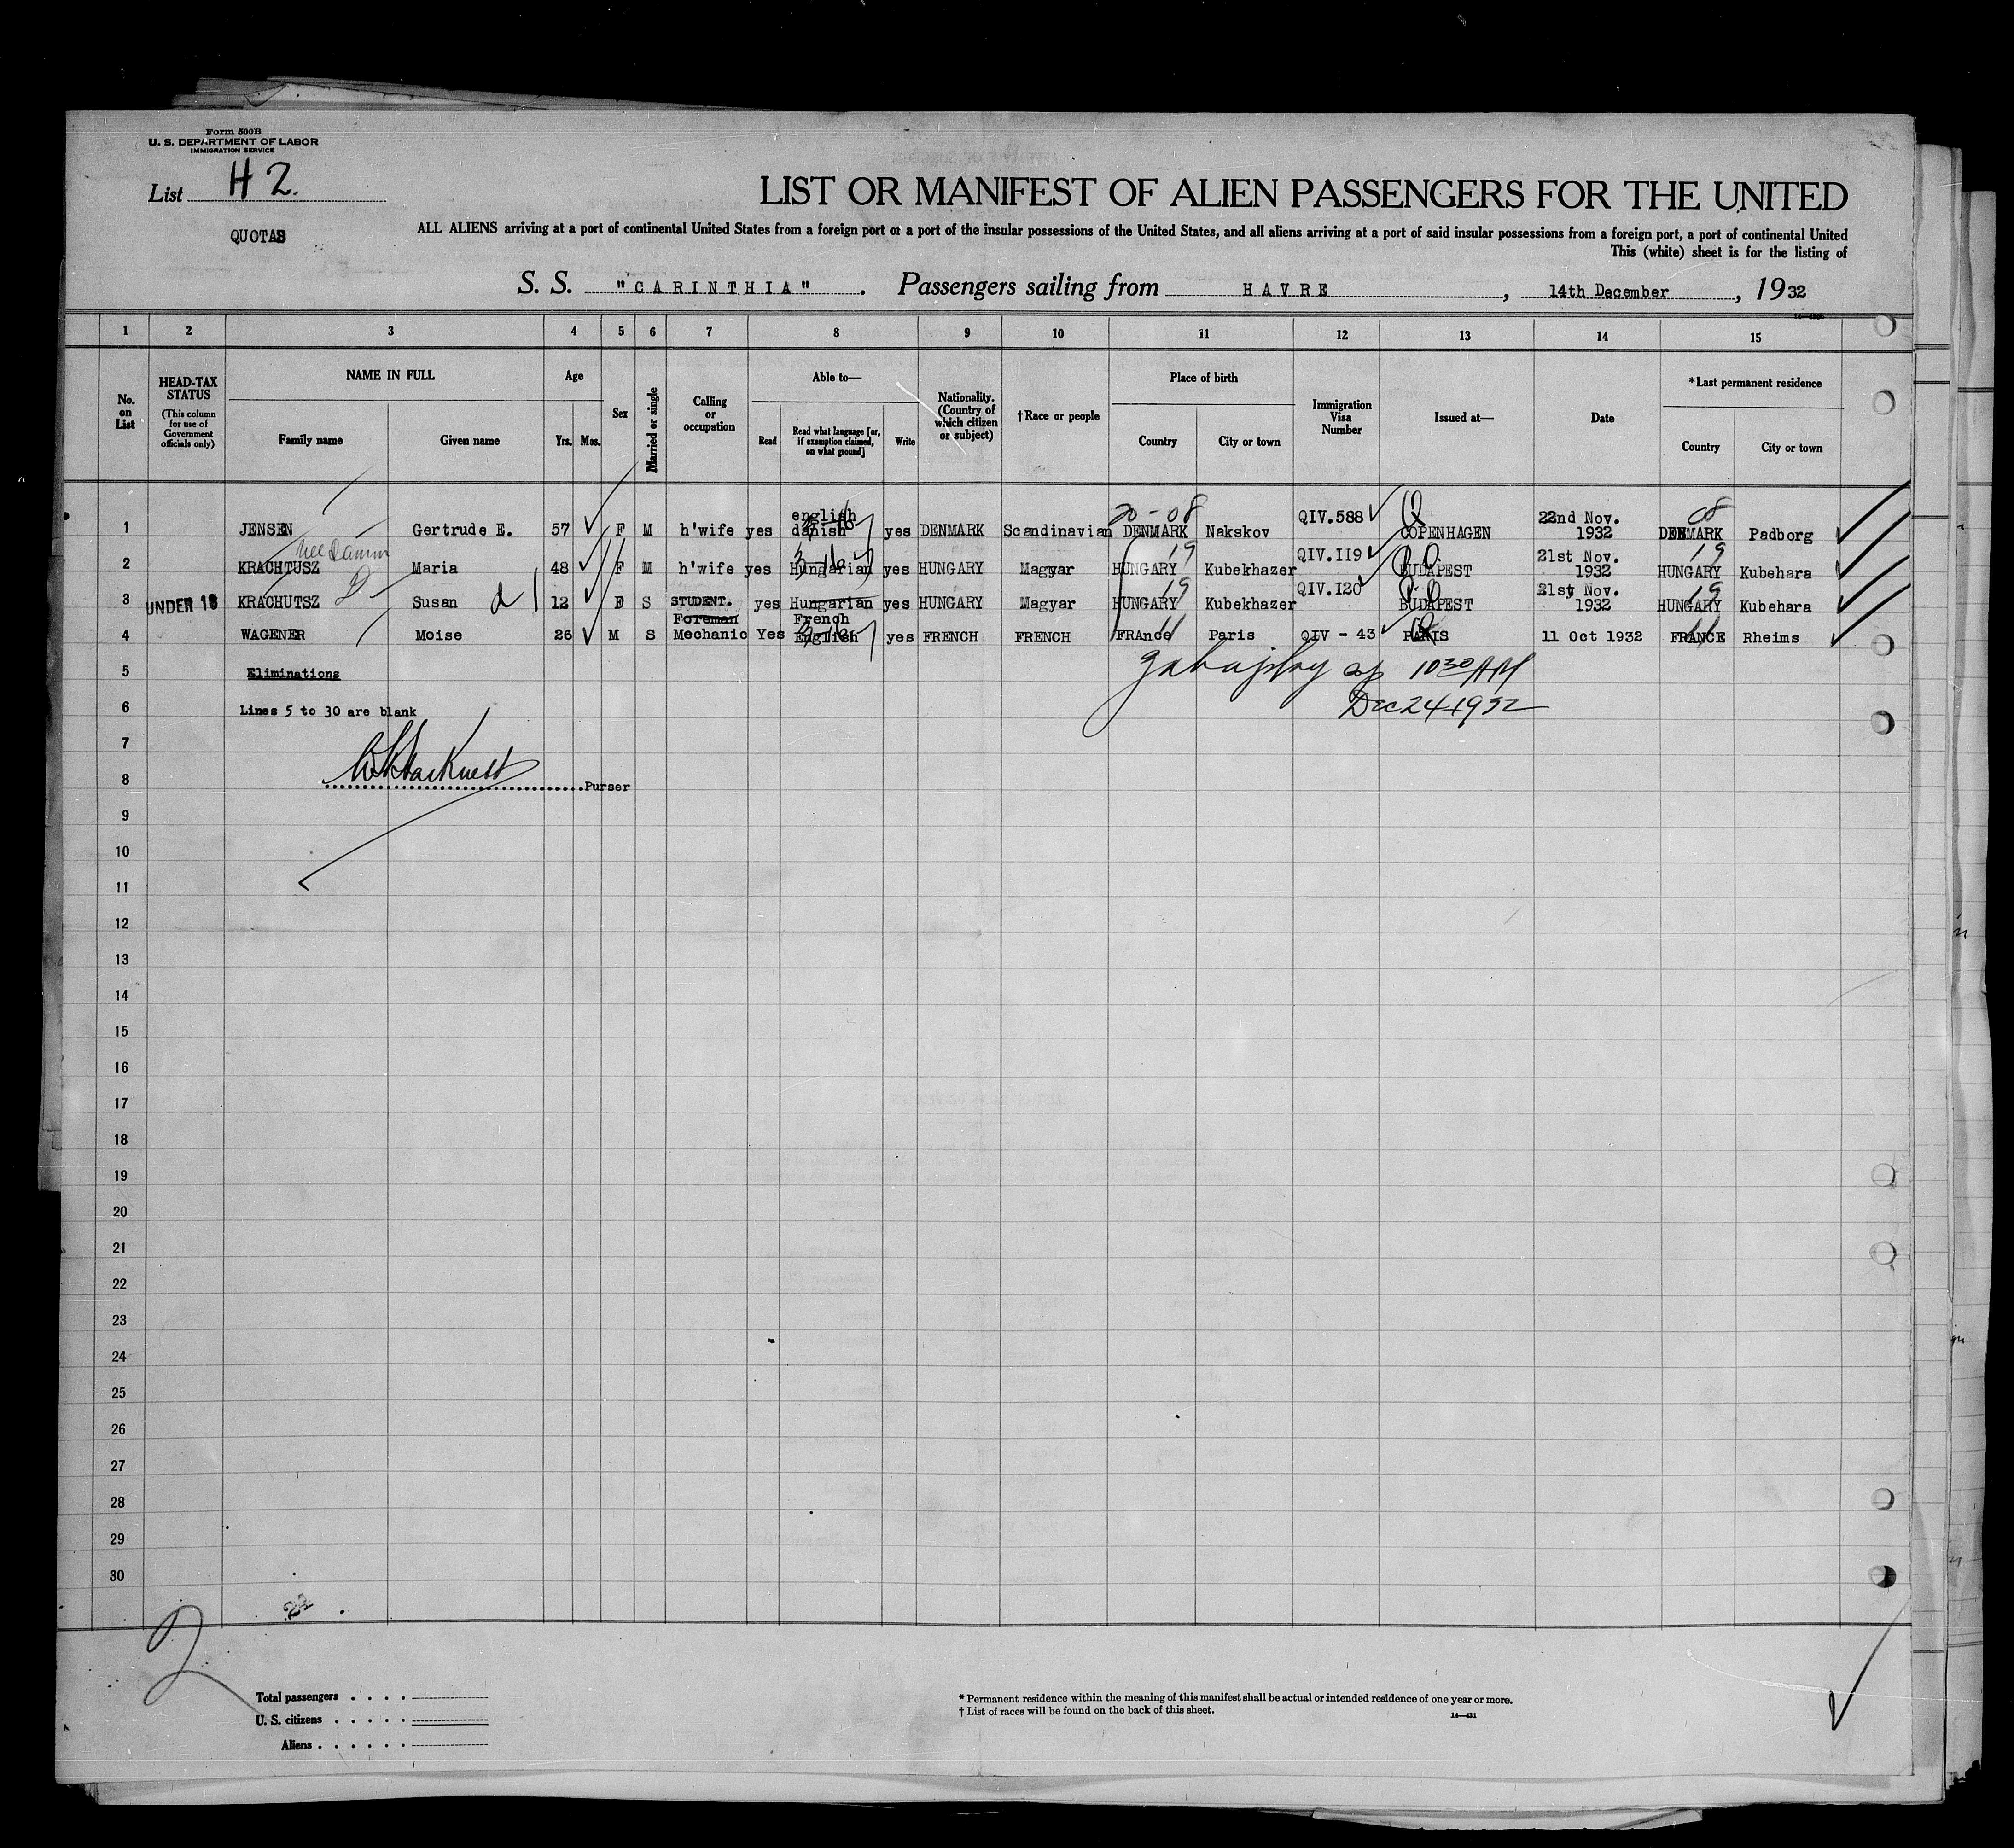 Form 500B
U. S. DEPARTMENT OF LABOR
IMMIGRATION SERVICE
List H 2.
QUOTAS
LIST OR MANIFEST OF ALIEN PASSENGERS FOR THE UNITED
ALL ALIENS arriving at a port of continental United States from a foreign port or a port of the insular possessions of the United States, and all aliens arriving at a port of said insular possessions from a foreign port, a port of continental United
This (white) sheet is for the listing of
S. S. "CARINTHIA" . Passengers sailing from HAVRE , 14th December , 1932
1 2 3 4 5 6 7 8 9 10 11 12 13 14 15
No. on List
HEAD-TAX STATUS
(This column for use of Government officials only)
NAME IN FULL
Family name Given name
Age
Yrs. Mos.
Sex
Married or single
Calling or occupation
Able to—
Read Read what language [or, if exemption claimed, on what ground] Write
Nationality. (Country of which citizen or subject)
†Race or people
Place of birth
Country City or town
Immigration Visa Number
Issued at—
Date
*Last permanent residence
Country City or town
english 20-08 QIV.588 Q 22nd Nov. 08
1 JENSEN Gertrude E. 57 F M h'wife yes danish yes DENMARK Scandinavian DENMARK Nakskov COPENHAGEN 1932 DENMARK Padborg
nee Damm 19 QIV.II9 21st Nov. 19
2 KRACHTUSZ Maria 48 F M h'wife yes Hungarian yes HUNGARY Magyar HUNGARY Kubekhazer BUDAPEST 1932 HUNGARY Kubehara
19 QIV.I20 21st Nov. 19
3 UNDER 16 KRACHUTSZ Susan d 12 F S STUDENT. yes Hungarian yes HUNGARY Magyar HUNGARY Kubekhazer BUDAPEST 1932 HUNGARY Kubehara
Foreman French 11 11
4 WAGENER Moise 26 M S Mechanic Yes English yes FRENCH FRENCH FRAnce Paris QIV - 43 PARIS 11 Oct 1932 FRANCE Rheims
5 Eliminations 10 30 AM
6 Lines 5 to 30 are blank Dec 24-1932
7
8 Purser
9
10
11
12
13
14
15
16
17
18
19
20
21
22
23
24
25
26
27
28
29
30
2
Total passengers . . . .
U. S. citizens . . . . .
Aliens . . . . . .
* Permanent residence within the meaning of this manifest shall be actual or intended residence of one year or more.
† List of races will be found on the back of this sheet.
14—431